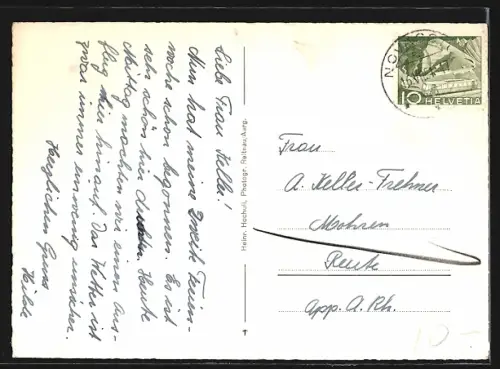 Liebe Frau Keller!
Nun hat meine zweite Ferien-
woche schon begonnen. Es ist
sehr schön hier oben. Heute
Mittag machten wir einen Aus-
flug hier hinauf. Das Wetter ist
zwar immer ein wenig unsicher.
Herzlichen Gruss
Hilde
Heinr. Hochuli, Photogr. Reitnau/Aarg.
10 HELVETIA
Frau
A. Keller-Frehner
Mohren
Reute
App. A. Rh.
10.-